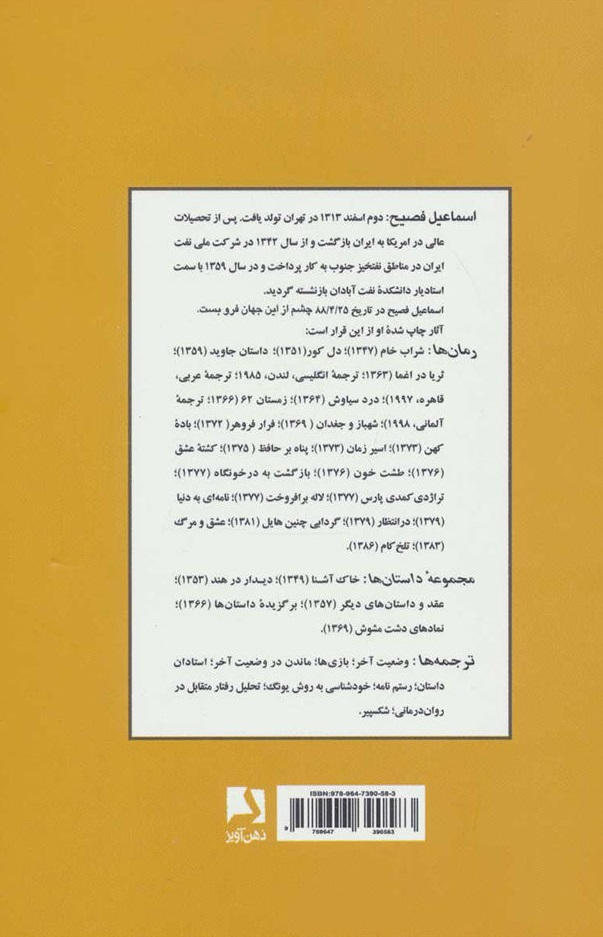 اسماعیل فصیح: دوم اسفند ۱۳۱۳ در تهران تولد یافت. پس از تحصیلات
عالی در امریکا به ایران بازگشت و از سال ۱۳۴۲ در شرکت ملی نفت
ایران در مناطق نفتخیز جنوب به کار پرداخت و در سال ۱۳۵۹ با سمت
استادیار دانشکدهٔ نفت آبادان بازنشسته گردید.
اسماعیل فصیح در تاریخ ۸۸/۴/۲۵ چشم از این جهان فرو بست.
آثار چاپ شدهٔ او از این قرار است:
رمان‌ها: شراب خام (۱۳۴۷)؛ دل کور(۱۳۵۱)؛ داستان جاوید (۱۳۵۹)؛
ثریا در اغما (۱۳۶۳؛ ترجمهٔ انگلیسی، لندن، ۱۹۸۵؛ ترجمهٔ عربی،
قاهره، ۱۹۹۷)؛ درد سیاوش (۱۳۶۴)؛ زمستان ۶۲ (۱۳۶۶؛ ترجمهٔ
آلمانی، ۱۹۹۸)؛ شهباز و جغدان ( ۱۳۶۹)؛ فرار فروهر( ۱۳۷۲)؛ بادهٔ
کهن (۱۳۷۳)؛ اسیر زمان (۱۳۷۳)؛ پناه بر حافظ ( ۱۳۷۵)؛ کشتهٔ عشق
(۱۳۷۶)؛ طشت خون (۱۳۷۶)؛ بازگشت به درخونگاه (۱۳۷۷)؛
تراژدی کمدی پارس (۱۳۷۷)؛ لاله برافروخت (۱۳۷۷)؛ نامه‌ای به دنیا
(۱۳۷۹)؛ درانتظار (۱۳۷۹)؛ گردابی چنین هایل (۱۳۸۱)؛ عشق و مرگ
(۱۳۸۳)؛ تلخ‌کام (۱۳۸۶).
مجموعهٔ داستان‌ها: خاک آشنا (۱۳۴۹)؛ دیدار در هند (۱۳۵۳)؛
عقد و داستان‌های دیگر (۱۳۵۷)؛ برگزیدهٔ داستان‌ها (۱۳۶۶)؛
نمادهای دشت مشوش (۱۳۶۹).
ترجمه‌ها: وضعیت آخر؛ بازی‌ها؛ ماندن در وضعیت آخر؛ استادان
داستان؛ رستم نامه؛ خودشناسی به روش یونگ؛ تحلیل رفتار متقابل در
روان‌درمانی؛ شکسپیر.
ذهن‌آویز
ISBN:978-964-7390-58-3
9 789647 390583